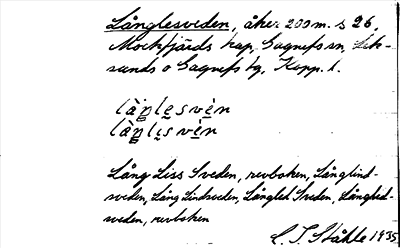 Långlesveden, åker 200 m. s 26,
Mockfjärds kap, Gagnefs sn, Lek-
sands o Gagnefs tg, Kopp. l.
làŋlesvèn
làŋlisvèn
Lång Liss Sveden, revboken, Långlind-
sveden, Lång Lindsveden, Långled Sveden, Långled-
sveden, revboken
C. I. Ståhle 1935